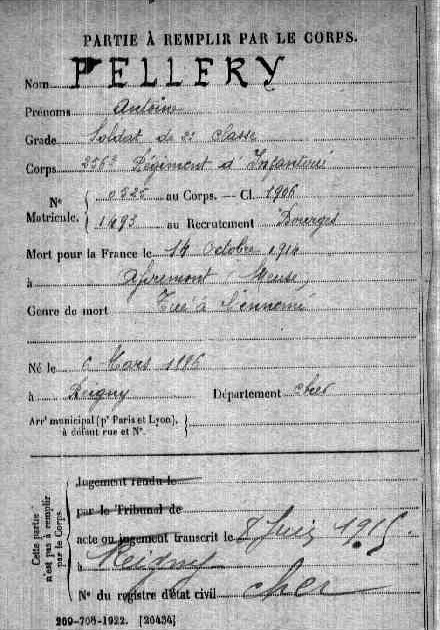 PARTIE À REMPLIR PAR LE CORPS.
Nom PELLERY
Prénoms Antoine
Grade Soldat de 2e classe
Corps 256e Régiment d'Infanterie
N° Matricule. 0325 au Corps. — Cl. 1906
1493 au Recrutement Bourges
Mort pour la France le 14 octobre 1914
à Apremont (Meuse)
Genre de mort Tué à l'ennemi
Né le Mars
à Département Cher
Arrt municipal (pr Paris et Lyon), à défaut rue et N°.
Cette partie n'est pas à remplir par le Corps.
Jugement rendu le
par le Tribunal de
acte ou jugement transcrit le 8 Juin 1915
à Reigny
N° du registre d'état civil Cher
209-708-1922. [20434]